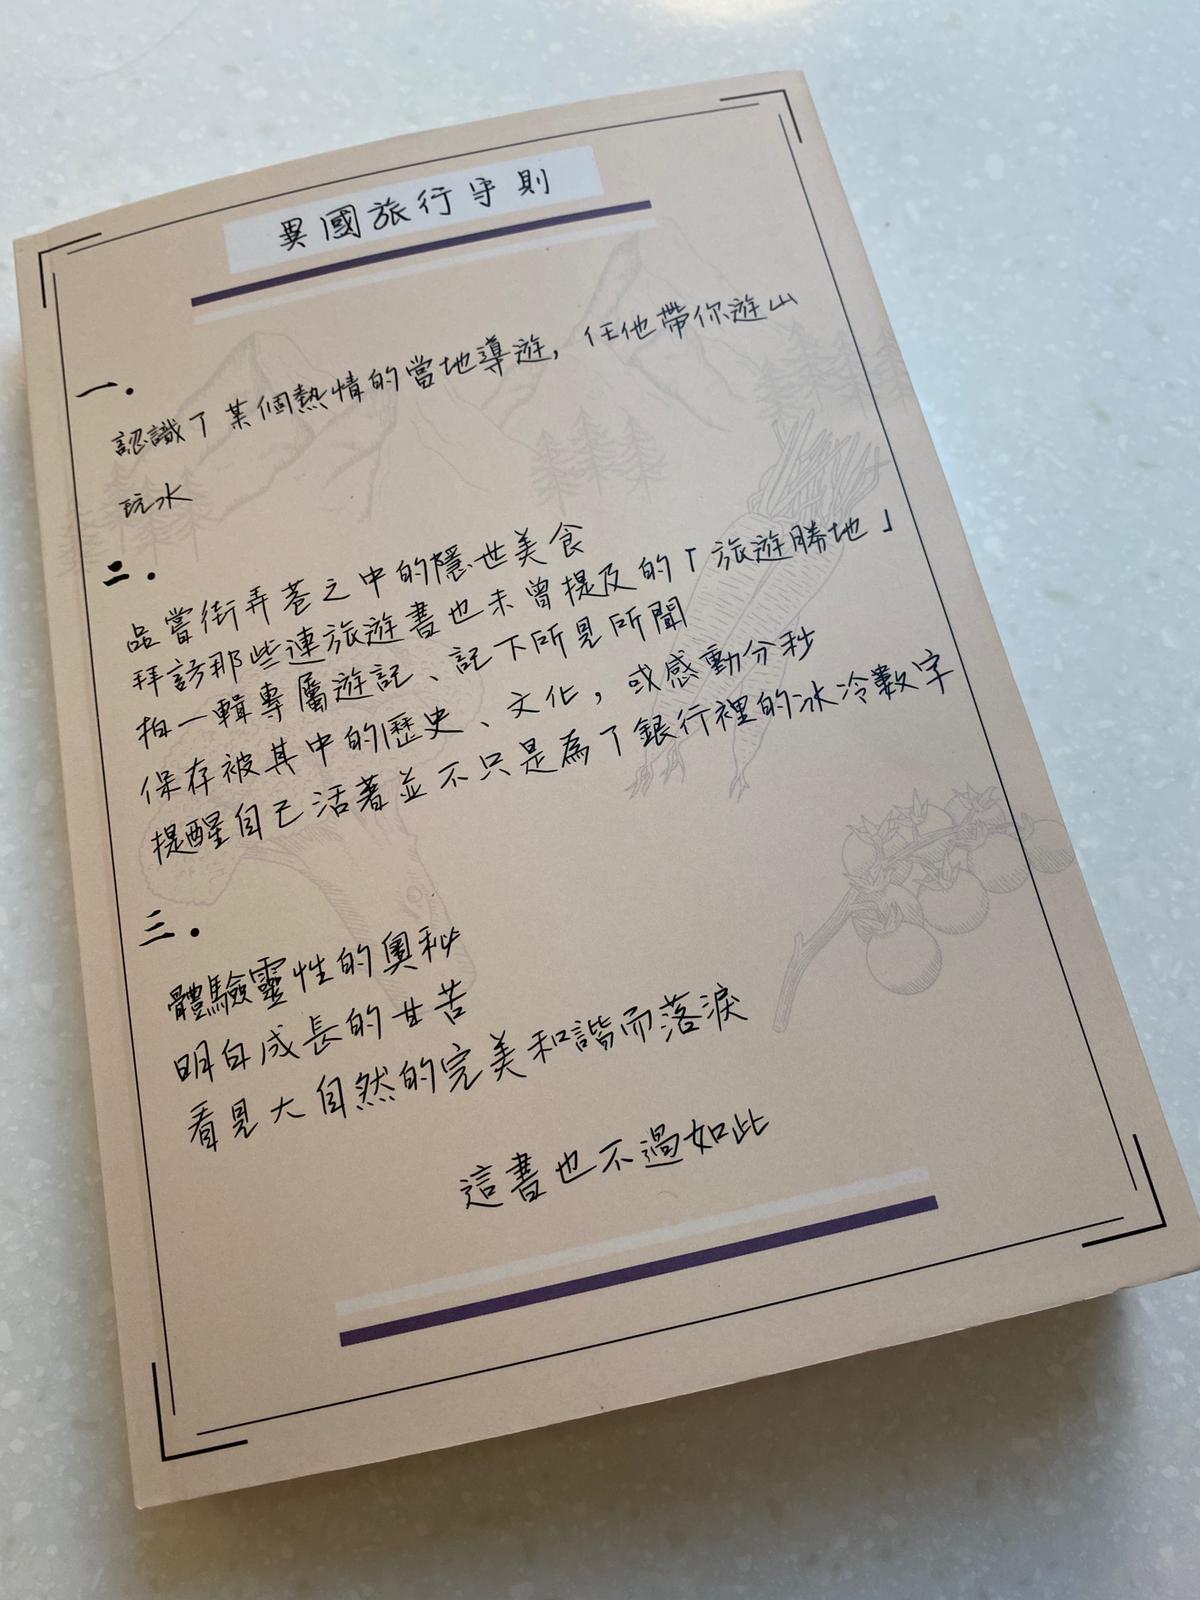 異國旅行守則
一.
認識了某個熱情的當地導遊，任他帶你遊山
玩水
二.
品嘗街弄巷之中的隱世美食
拜訪那些連旅遊書也未曾提及的「旅遊勝地」
拍一輯專屬遊記、記下所見所聞
保存被其中的歷史、文化，或感動分秒
提醒自己活著並不只是為了銀行裡的冰冷數字
三.
體驗靈性的奧秘
明白成長的甘苦
看見大自然的完美和諧而落淚
這書也不過如此